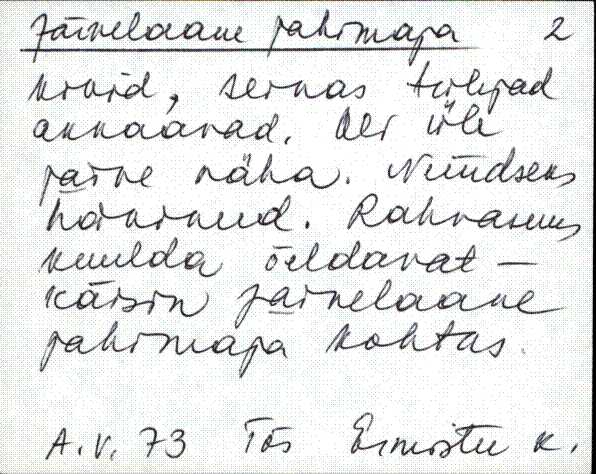 Järvelaane jahimaja 2
kivid, seinas tulijad
aknaavad. Oli üle
järve näha. Nüüdseks
hävinud. Rahvasuus
kuulda öeldavat —
käisin Järvelaane
jahimaja kohtas.
A.V. 73 Tõs Ermistu k.